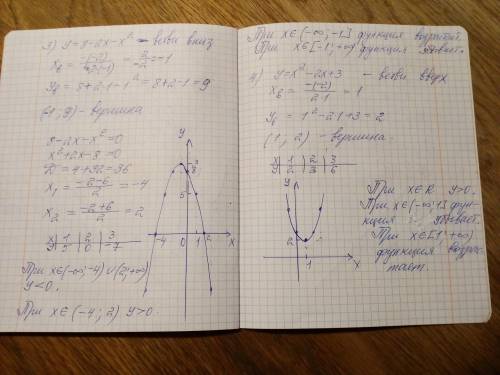 3) y=8-2x-x² - ветви вниз
xв = -(-2)/2·(-1) = 2/-2 = -1
yв = 8+2·1-1² = 8+2-1=9
(-1; 9) - вершина
8-2x-x²=0
x²+2x-8=0
D = 4+32=36
x₁ = -2-6/2 = -4
x₂ = -2+6/2 = 2
x | 1 | 2 | 3
y | 5 | 0 | -7
При x∈(-∞;-4)∪(2;+∞)
y<0.
При x∈(-4; 2) y>0.
y
9
8
5
-4
0
1
2
x
При x∈(-∞;-1] функция возрастает.
При x∈[-1;+∞) функция убывает.
4) y=x²-2x+3 - ветви вверх
xв = -(-2)/2·1 = 1
yв = 1²-2·1+3=2
(1; 2) - вершина.
x | 1 | 2 | 3
y | 2 | 3 | 6
y
2
0
1
x
При x∈R y>0.
При x∈(-∞;1] функ-
ция убывает.
При x∈[1;+∞)
функция возрас-
тает.